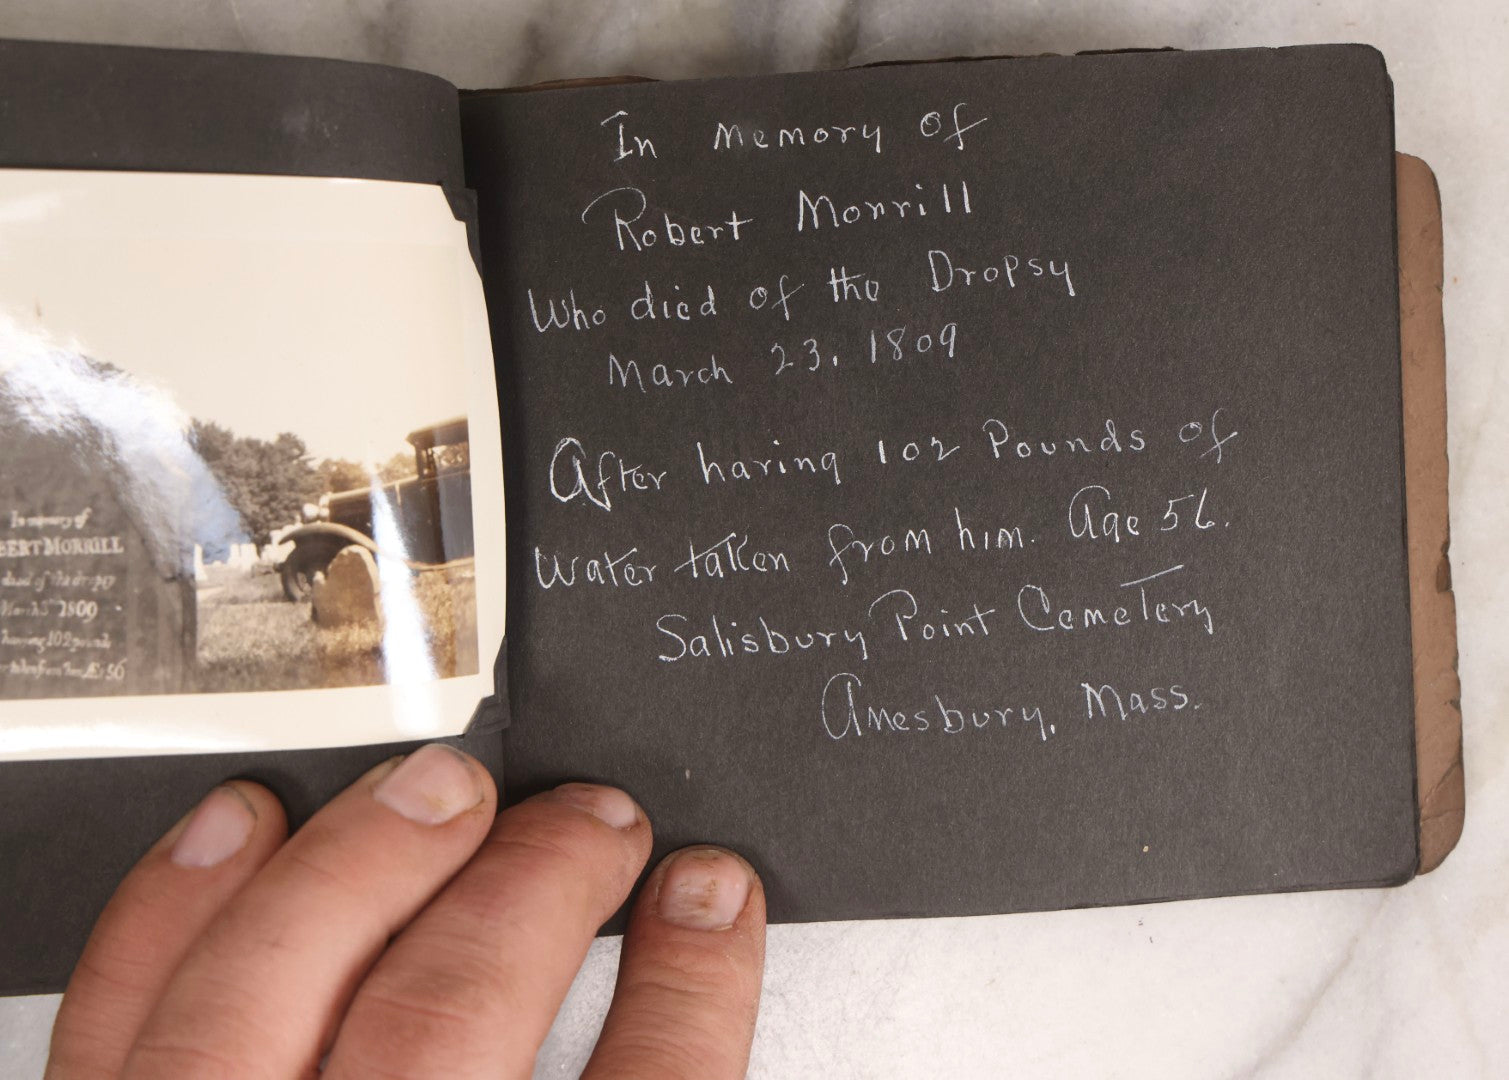 In memory of
BERT MORRILL
died of the dropsy
1809
having 102 pounds
56
In Memory of
Robert Morrill
Who died of the Dropsy
March 23, 1809
After having 102 Pounds of
Water taken from him. Age 56.
Salisbury Point Cemetery
Amesbury, Mass.